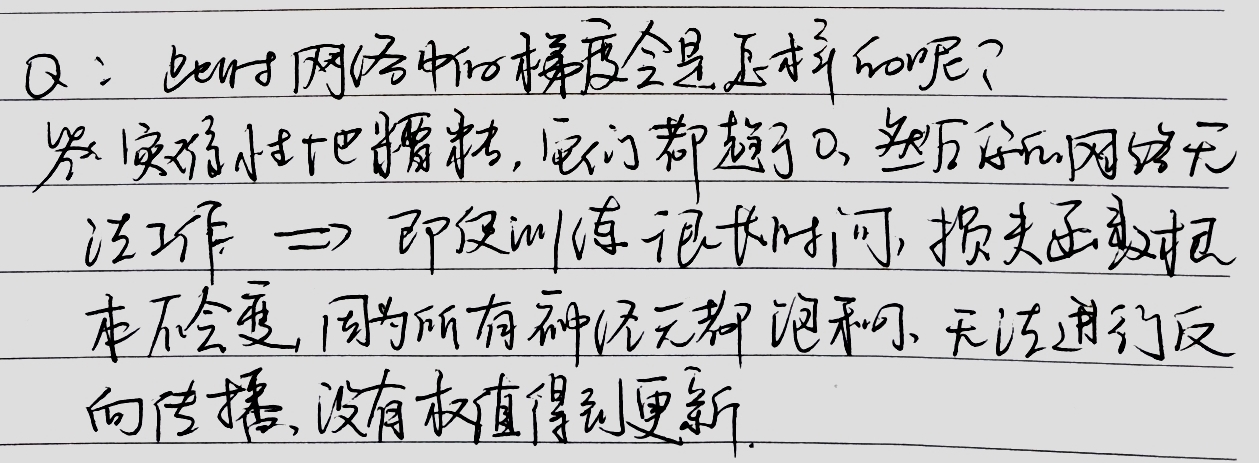 Q: 此时网络中的梯度会是怎样的呢?
灾难性地糟糕, 它们都趋于0、然后你的网络无
法工作 => 即使训练很长时间, 损失函数根
本不会变, 因为所有神经元都饱和了、无法进行反
向传播、没有权值得到更新.